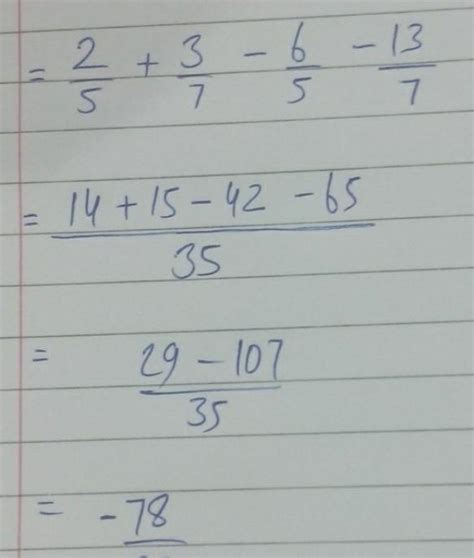 = 2/5 + 3/7 - 6/5 - 13/7
= 14 + 15 - 42 - 65 / 35
= 29 - 107 / 35
= -78